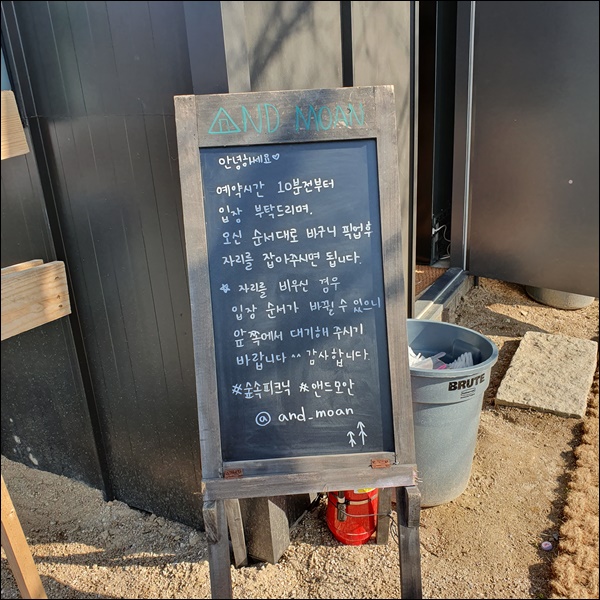 AND MOAN
안녕하세요♡
예약시간 10분전부터
입장 부탁드리며,
오신 순서대로 바구니 픽업후
자리를 잡아주시면 됩니다.
* 자리를 비우신 경우
입장 순서가 바뀔 수 있으니
앞쪽에서 대기해 주시기
바랍니다^^ 감사합니다.
#숲속피크닉 #앤드모안
@ and_moan
BRUTE